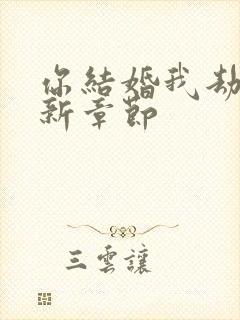 你結婚我劫
新章節
三雲讓